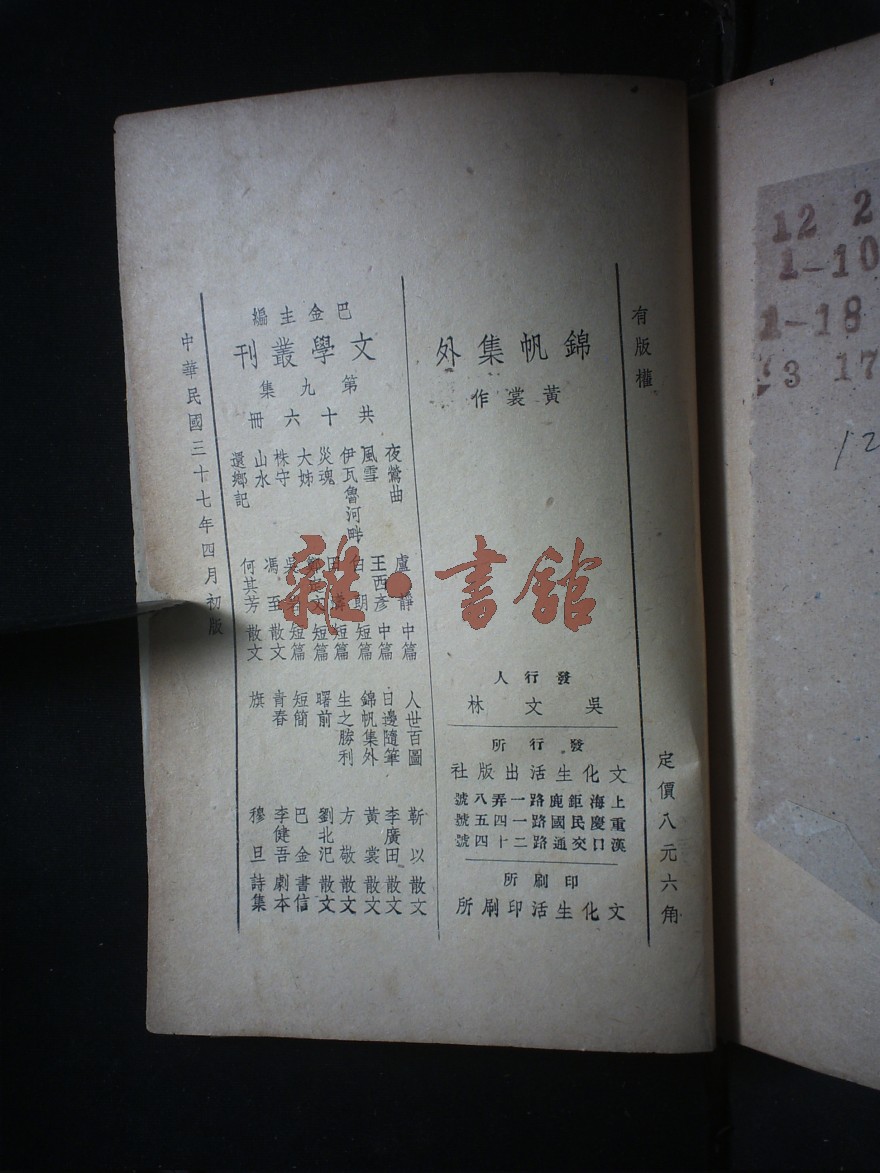 有版權
定價八元六角
錦帆集外
黃裳作
發行人
吳文林
發行所
文化生活出版社
上海鉅鹿路一弄八號
重慶民國路一四五號
漢口交通路二十四號
印刷所
文化生活印刷所
巴金主編
文學叢刊
第九集
共十六冊
夜鶯曲 盧靜 中篇
風雪 王西彥 中篇
伊瓦魯河畔 白朗 短篇
災魂 田 短篇
大姊 文 短篇
株守 吳 短篇
山水 馮至 散文
還鄉記 何其芳 散文
人世百圖 靳以 散文
日邊隨筆 李廣田 散文
錦帆集外 黃裳 散文
生之勝利 方敬 散文
曙前 劉北汜 散文
短簡 巴金 書信
青春 李健吾 劇本
旗 穆旦 詩集
中華民國三十七年四月初版
雜·書館
12 2
1-10
1-18
3 17
12